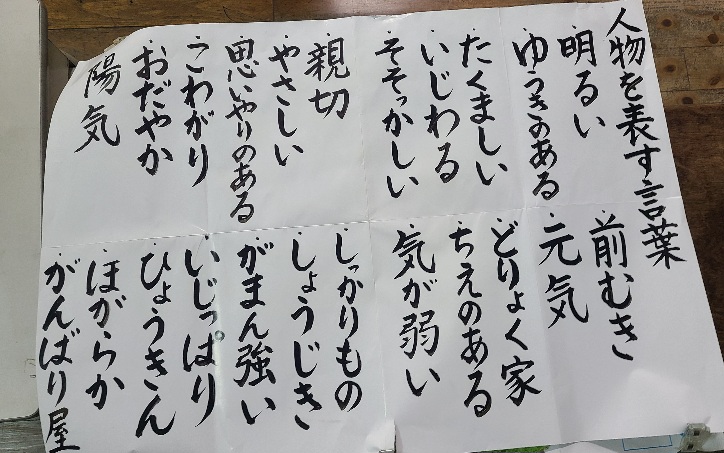 人物を表す言葉
・明るい
・ゆうきのある
・たくましい
・いじわる
・そそっかしい
・親切
・やさしい
・思いやりのある
・こわがり
・おだやか
・陽気
・前むき
・元気
・どりょく家
・ちえのある
・気が弱い
・しっかりもの
・しょうじき
・がまん強い
・いじっぱり
・ひょうきん
・ほがらか
・がんばり屋